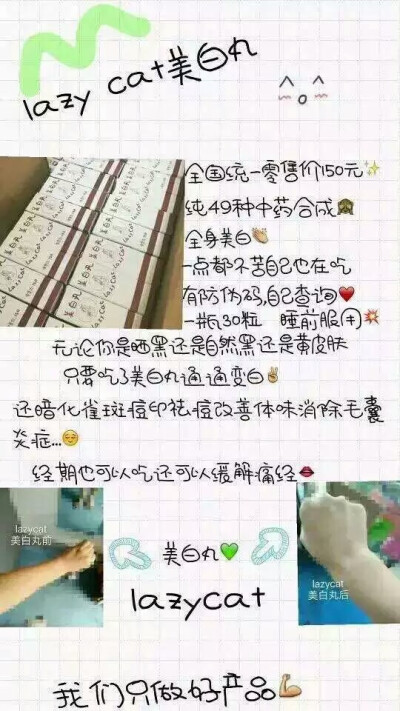 lazy cat美白丸
全国统一零售价150元✨
纯49种中药合成🙈
全身美白👏
一点都不苦自己也在吃
有防伪码,自己查询❤️
一瓶30粒 睡前服用💥
无论你是晒黑还是自然黑还是黄皮肤
只要吃了美白丸通通变白✌️
还暗化雀斑痘印祛痘改善体味消除毛囊
炎症...😌
经期也可以吃还可以缓解痛经👄
lazycat
美白丸前
美白丸💚
lazycat
lazycat
美白丸后
我们只做好产品💪